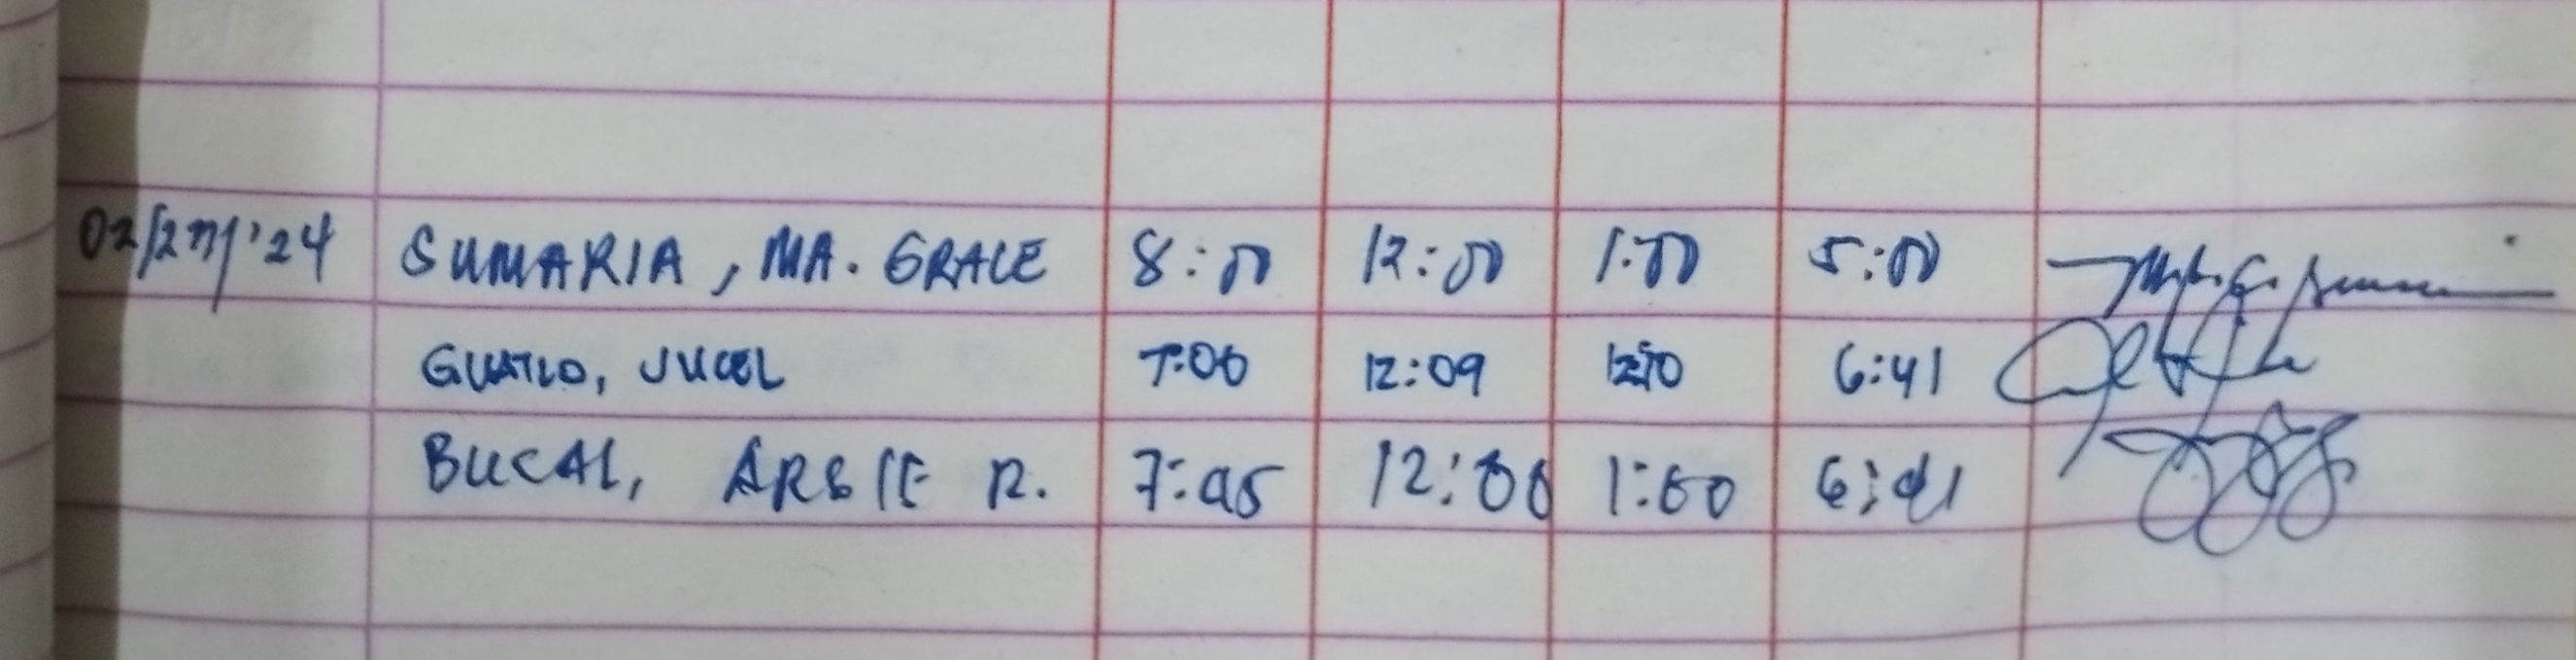 02/27/'24 SUMARIA, MA. GRACE 8:00 12:00 1:00 5:00
GUATLO, JUCEL 7:00 12:09 12:10 6:41
BUCAL, ARSIE R. 7:45 12:00 1:00 6:41